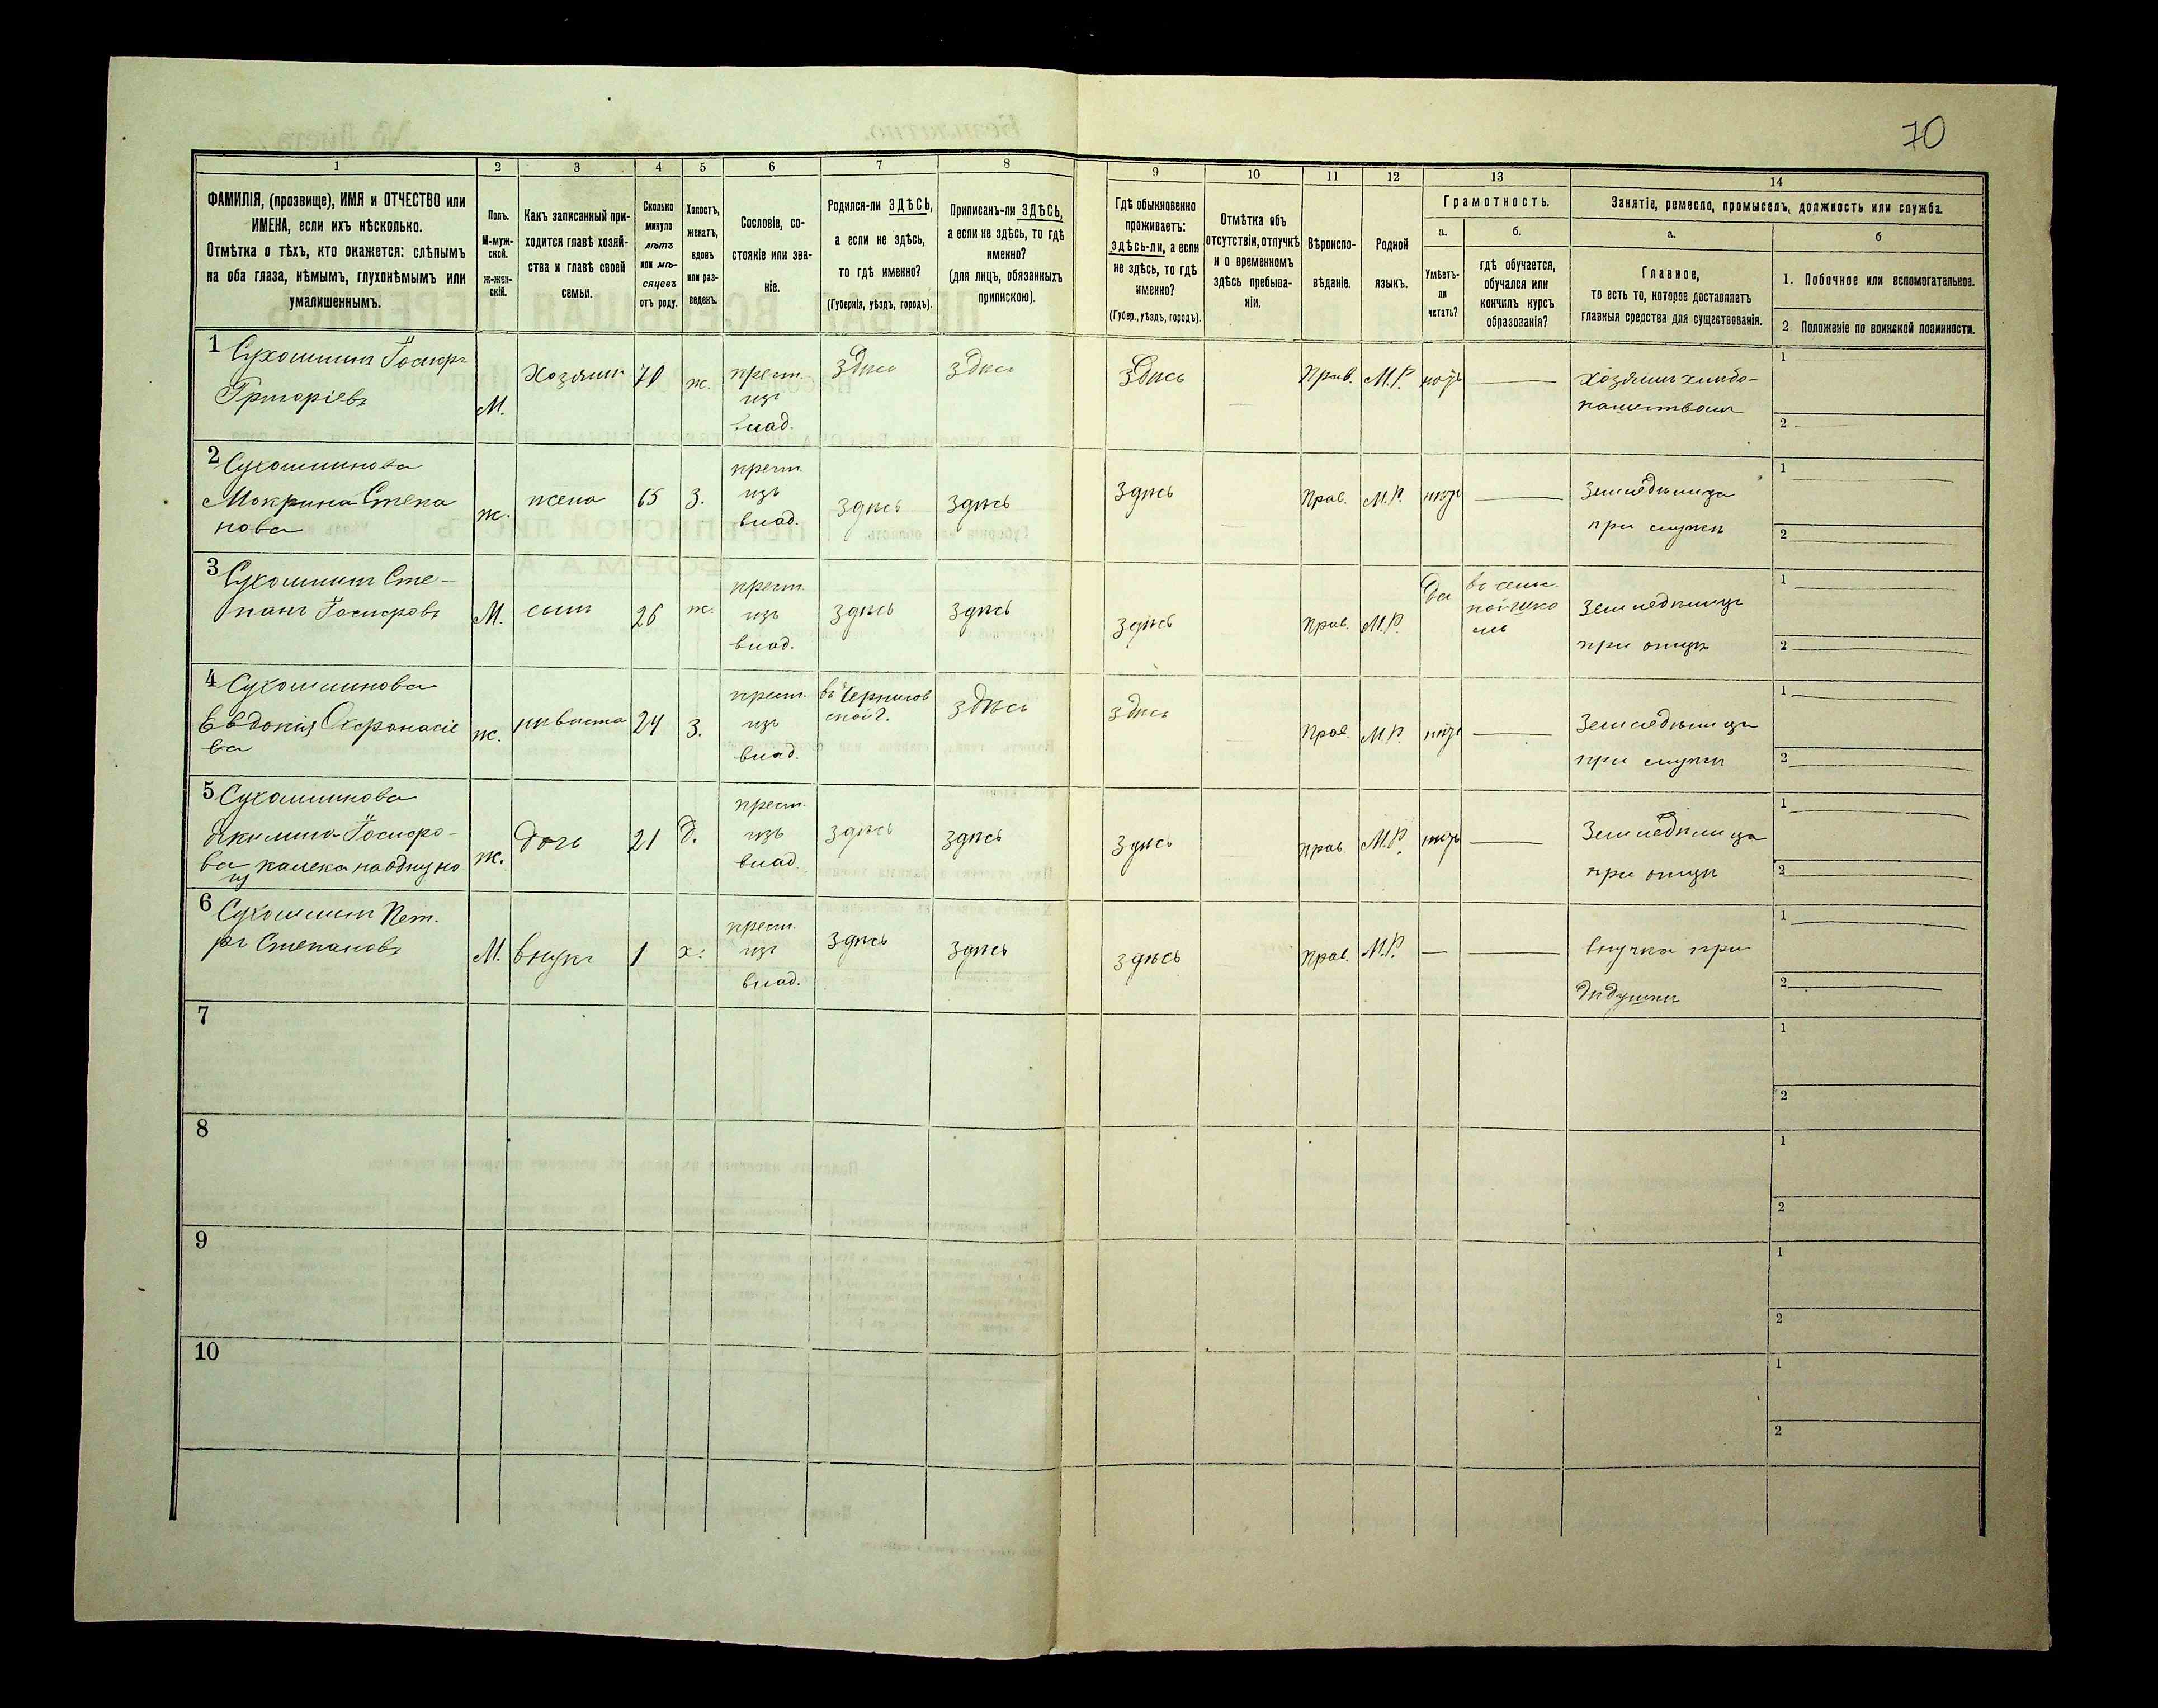 70
1 2 3 4 5 6 7 8 9 10 11 12 13 14
ФАМИЛІЯ, (прозвище), ИМЯ и ОТЧЕСТВО или
ИМЕНА, если ихъ нѣсколько.
Отмѣтка о тѣхъ, кто окажется: слѣпымъ
на оба глаза, нѣмымъ, глухонѣмымъ или
умалишеннымъ.
Полъ.
М-муж-
ской.
ж-жен-
скій.
Какъ записанный при-
ходится главѣ хозяй-
ства и главѣ своей
семьи.
Сколько
минуло
лѣтъ
или мѣ-
сяцевъ
отъ роду.
Холостъ,
женатъ,
вдовъ
или раз-
веденъ.
Сословіе, со-
стояніе или зва-
ніе.
Родился-ли ЗДѢСЬ,
а если не здѣсь,
то гдѣ именно?
(Губернія, уѣздъ, городъ).
Приписанъ-ли ЗДѢСЬ,
а если не здѣсь, то гдѣ
именно?
(для лицъ, обязанныхъ
припискою).
Гдѣ обыкновенно
проживаетъ:
здѣсь-ли, а если
не здѣсь, то гдѣ
именно?
(Губер., уѣздъ, городъ).
Отмѣтка объ
отсутствіи, отлучкѣ
и о временномъ
здѣсь пребыва-
ніи.
Вѣроиспо-
вѣданіе.
Родной
языкъ.
Грамотность.
а.
Умѣетъ-
ли
читать?
б.
гдѣ обучается,
обучался или
кончилъ курсъ
образованія?
Занятіе, ремесло, промыселъ, должность или служба.
а.
Главное,
то есть то, которое доставляетъ
главныя средства для существованія.
б
1. Побочное или вспомогательное.
2. Положеніе по воинской повинности.
1 Сухошинъ Іосифъ
Григоріевъ
М.
Хозяинъ
70
ж.
крест.
изъ
влад.
здѣсь
здѣсь
Здѣсь
Прав.
М.Р.
нѣтъ
хозяинъ хлѣбо-
пашествомъ
1
2
2 Сухошинова
Мокрина Степа
нова
ж.
жена
65
З.
крест.
изъ
влад.
здѣсь
здѣсь
здѣсь
Прав.
М.Р.
нѣтъ
Земледѣлица
при мужѣ
1
2
3 Сухошинъ Сте-
панъ Іосифовъ
М.
сынъ
26
ж.
крест.
изъ
влад.
здѣсь
здѣсь
здѣсь
Прав.
М.Р.
Да
въ сель
кой шко
лѣ
Земледѣлецъ
при отцѣ
1
2
4 Сухошинова
Евдокія Афанасіе
ва
ж.
невѣстка
24
З.
крест.
изъ
влад.
въ Чернигов
ской г.
здѣсь
здѣсь
Прав.
М.Р.
нѣтъ
Земледѣлица
при мужѣ
1
2
5 Сухошинова
Акилина Іосифо-
ва калека на одну но
гу
ж.
дочь
21
д.
крест.
изъ
влад.
здѣсь
здѣсь
здѣсь
прав.
М.Р.
нѣтъ
Земледѣлица
при отцѣ
1
2
6 Сухошинъ Пет.
ръ Степановъ
М.
внукъ
1
х.
крест.
изъ
влад.
здѣсь
здѣсь
здѣсь
Прав.
М.Р.
внучка при
дѣдушкѣ
1
2
7
1
2
8
1
2
9
1
2
10
1
2